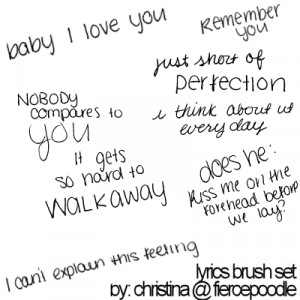 baby I love you
Remember
you
just short of
perfection
NOBODY
compares to
you
i think about us
every day
it gets
so hard to
WALK AWAY
does he:
kiss me on the
forehead before
we lay?
I can't explain this feeling
lyrics brush set
by: christina @ fiercepoodle